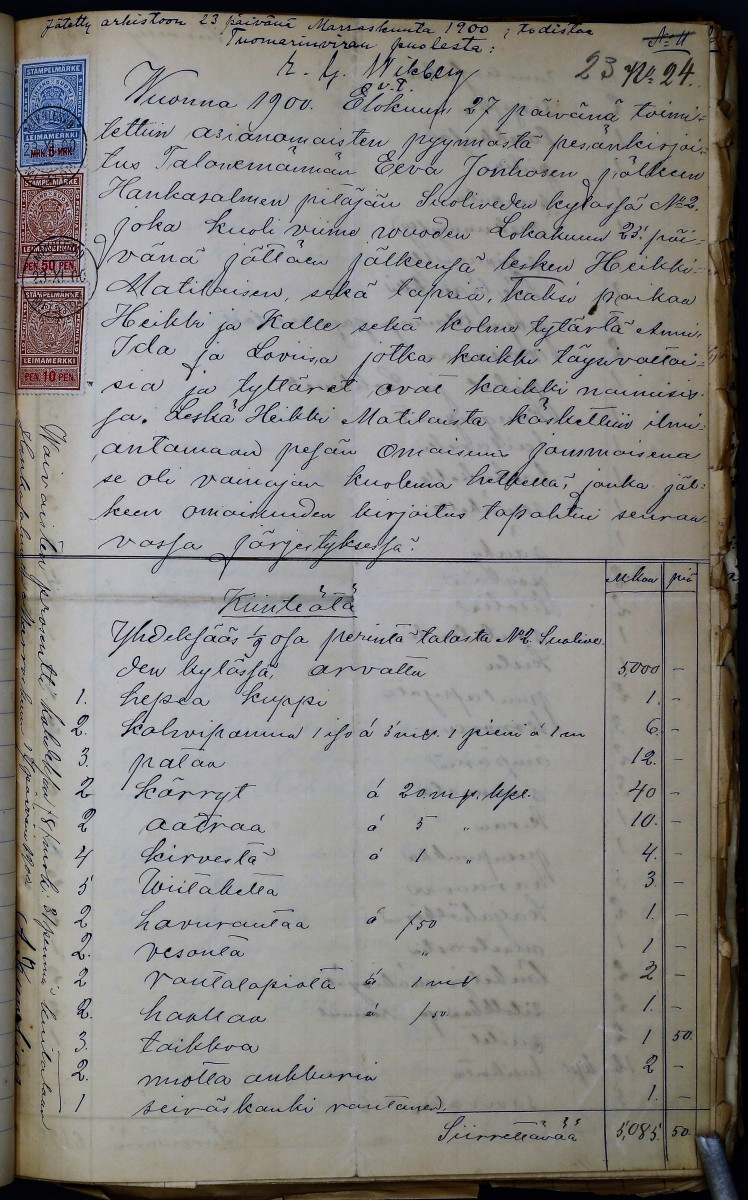 Jätetty arkistoon 23 päivänä Marraskuuta 1900, todistaa
Tuomarinviran puolesta:
E. G. Wikberg
v.t.
No 11
23 No 24.
STÄMPELMÄRKE
LEIMAMERKKI
STÄMPELMÄRKE
LEIMAMERKKI
PEN. 50 PEN.
STÄMPELMÄRKE
LEIMAMERKKI
PEN. 10 PEN.
Vuonna 1900. Elokuun 27 päivänä toimi-
tettiin asianomaisten pyynnöstä pesänkirjoi-
tus Talonemännän Eeva Jonhosen jälkeen
Hankasalmen pitäjän Suoliveden kylässä No 2.
joka kuoli viime vuoden Lokakuun 25 päi-
vänä jättäen jälkeensä lesken Heikki
Matilaisen, sekä lapsia, kaksi poikaa
Heikki ja Kalle sekä kolme tytärtä Anni,
Ida ja Loviisa jotka kaikki täysivaltai-
sia ja tyttäret ovat kaikki naimisis-
sa. Leskä Heikki Matilaista käskettiin ilmi-
antamaan pesän omaisuus jommoisena
se oli vainajan kuolema hetkellä, jonka jäl-
keen omaisuuden kirjoitus tapahtui seuraa-
vassa järjestyksessä:
Mkaa piä
Kiinteätä
Yhdeksäs 1/9 osa perintä talosta No 2. Suolive-
den kylässä, arvattu 5,000 –
1. hepea kuppi 1. –
2. kahvipannua 1 iso á 5 mk. 1 pieni á 1 m 6 –
3. pataa 12. –
2 kärryt á 20 mk. kpl. 40 –
2 aatraa á 5 „ 10. –
4 kirvestä á 1 „ 4. –
5 Wiitaketta 3. –
2 havurautaa á /50 1. –
2. vesonta „ 1 –
2 rautalapiota á 1 mk 2 –
2. haraaa á /50 1. –
3. taikkoa 1 50.
2. nuotta ankkuria 2 –
1 seiväskanki rautanen 1. –
Siirrettävää 5,085. 50
Waivaisten prosentti kahdeksan (8) mark. 8 penniä kuitataan
Hankasalmella Marraskuun päivänä 1900